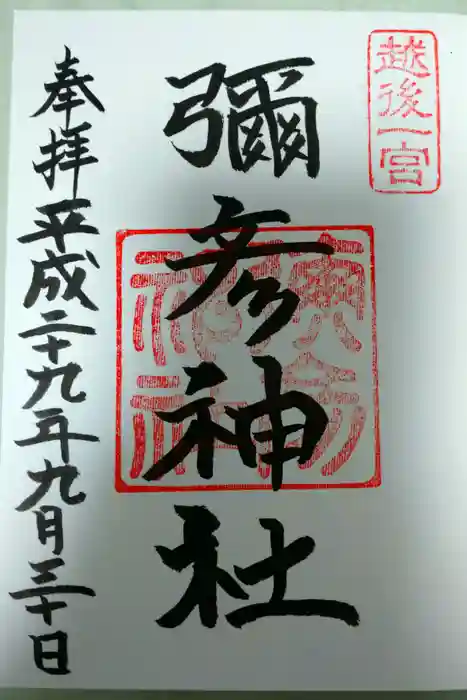 越後一宮
彌彦神社
奉拝平成二十九年九月三十日